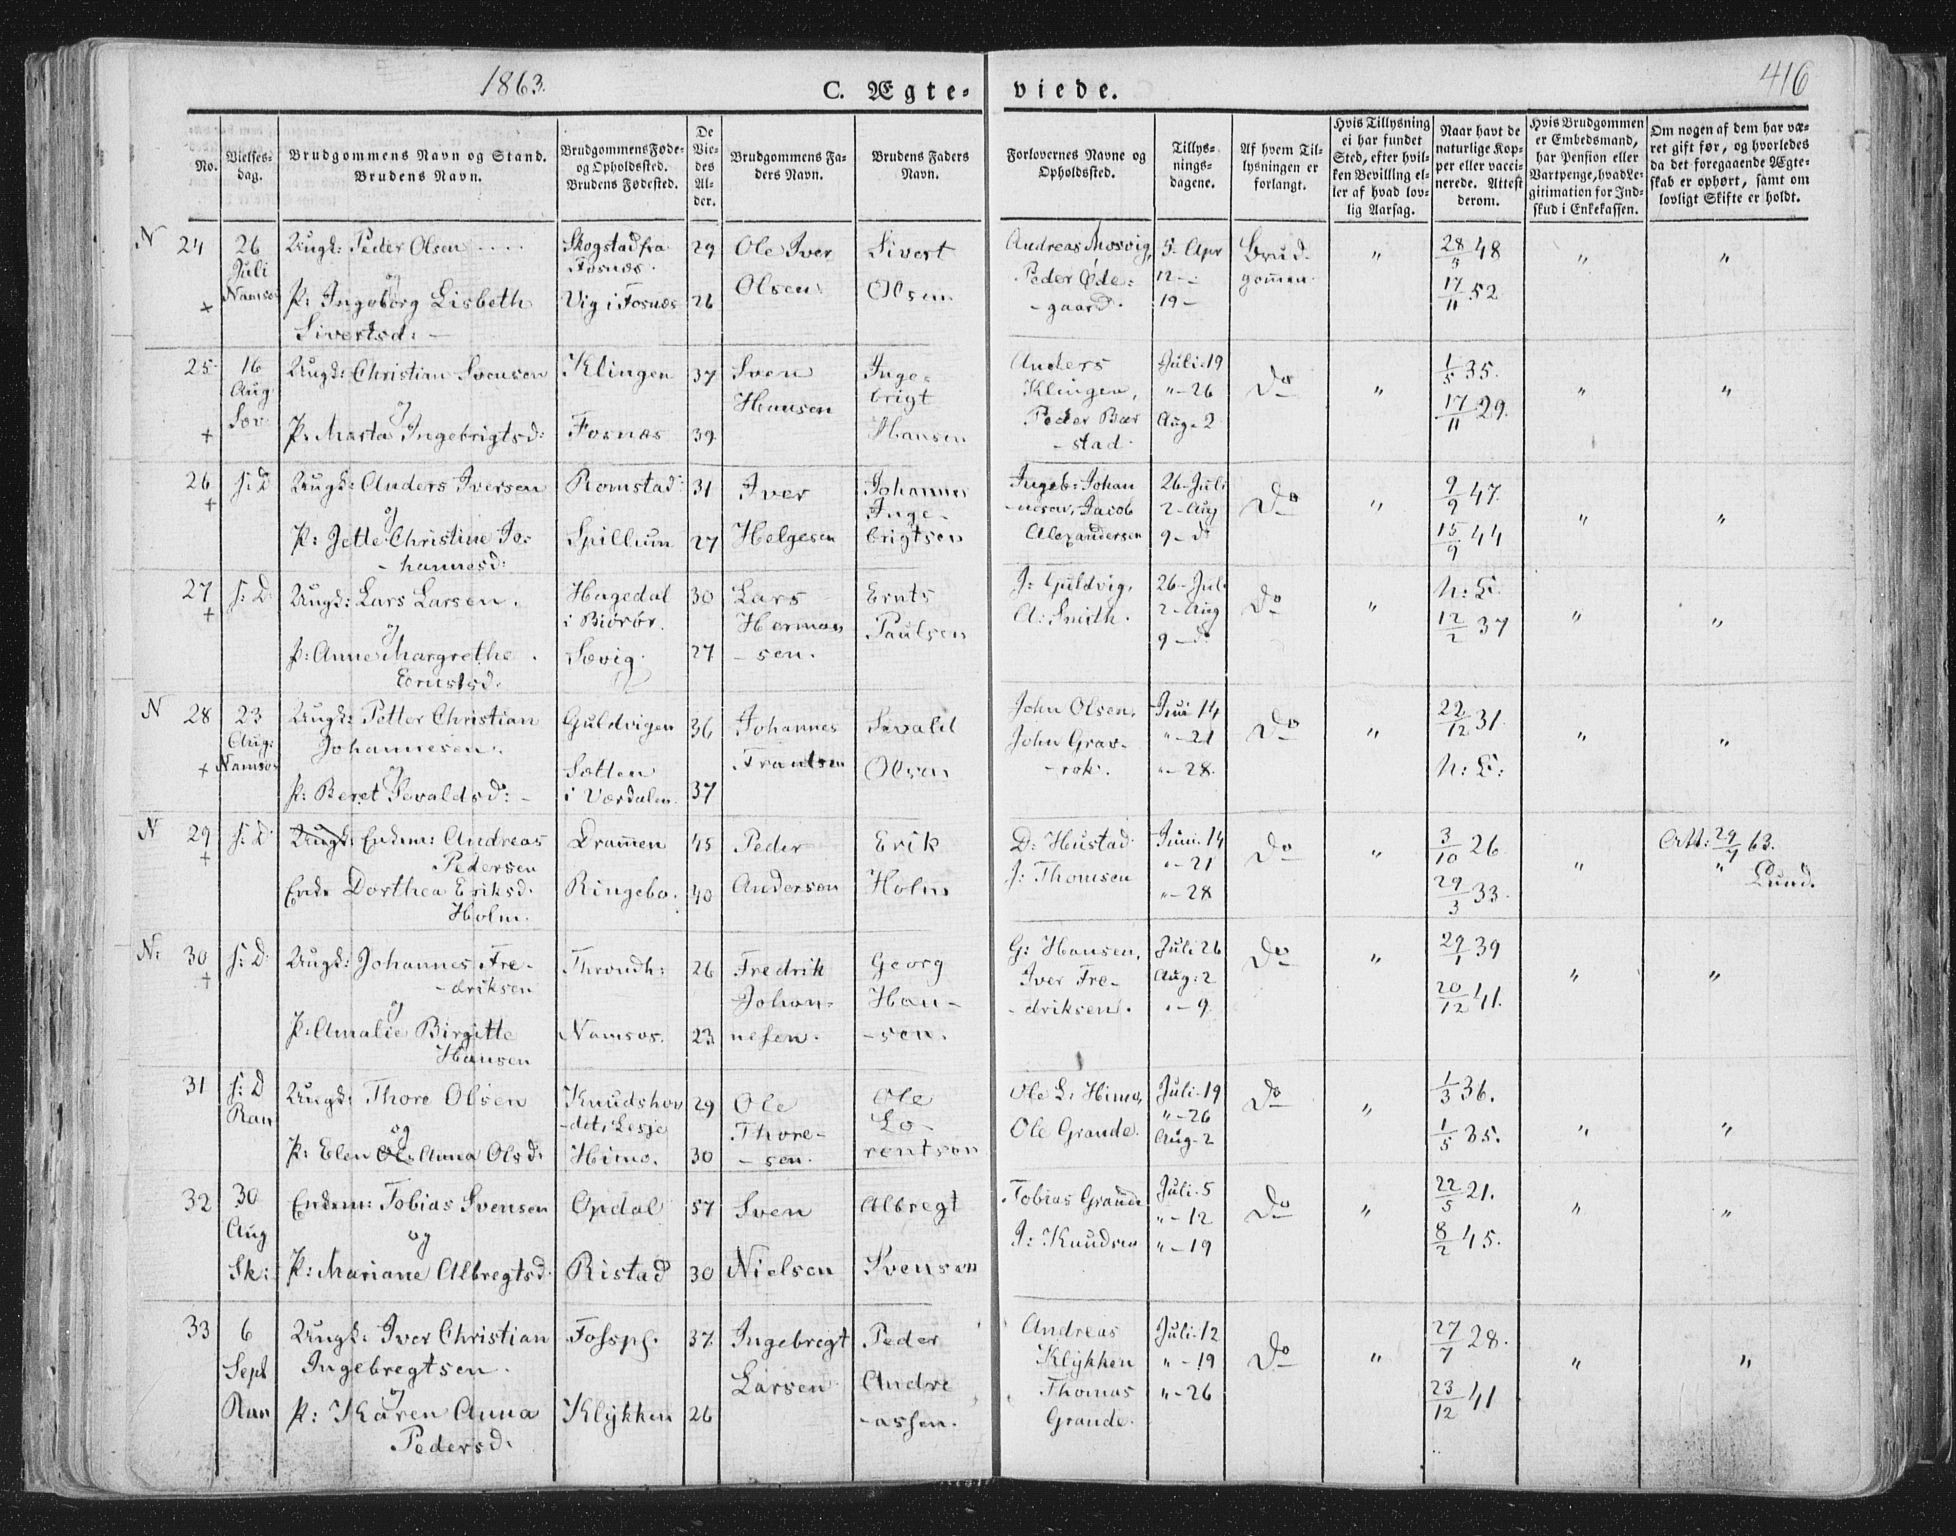 1863.
C. Ægte-
viede.
416
No.
Vielses-
dag.
Brudgommens Navn og Stand.
Brudens Navn.
Brudgommens Føde-
og Opholdsted.
Brudens Fødested.
De
Vie-
des
Al-
der.
Brudgommens Fa-
ders Navn.
Brudens Faders
Navn.
Forlovernes Navne og
Opholdsted.
Tillys-
nings-
dagene.
Af hvem Til-
lysningen er
forlangt.
Hvis Tillysning
ei har fundet
Sted, efter hvil-
ken Bevilling el-
ler af hvad lov-
lig Aarsag.
Naar havt de
naturlige Kop-
per eller vacci-
nerede. Attest
derom.
Hvis Brudgommen
er Embedsmand,
har Pension eller
Vartpenge, hvad Le-
gitimation for Ind-
skud i Enkekassen.
Om nogen af dem har væ-
ret gift før, og hvorledes
da det foregaaende Ægte-
skab er ophørt, samt om
lovligt Skifte er holdt.
N 24 + 26 Juli Namsos
Ungk: Peder Olsen
og
P: Ingeborg Lisbeth
Sivertsd:
Skogstad fra
Fosnæs.
Vig i Fosnæs
29
26
Ole Iver
Olsen
Sivert
Olsen
Andreas Mosvig,
Peder Øde-
-gaard.
5- Apr
12 -
19 -
Brud-
gommen.
"
28/5 48
17/11 52
"
"
25 + 16 Aug Sæv.
Ungk: Christian Svensen
og
P: Marta Ingebrigtsd:
Klingen
Fosnæs
37
39
Sven
Hansen
Inge-
brigt
Hansen
Anders
Klingen,
Peder Bær
-stad.
Juli-19
"-26
Aug-2
Do
"
1/5 35.
17/11 29.
"
"
26 + s: D
Ungk: Anders Iversen
og
P: Jette Christine Jo-
-hannesd:
Romstad
Spillum
31
27
Iver
Helgesen
Johannes
Inge-
brigtsen
Ingeb: Johan
-nesen, Jacob
Alexandersen
26-Juli
2-Aug
9-do
Do
"
9/9 47.
15/9 44
"
"
27 + s: D:
Ungk: Lars Larsen.
og
P: Anne Margrethe
Ernstsd.
Hagedal
i Biørør.
Sævig.
30
27
Lars
Herman
-sen.
Ernts
Paulsen
J: Guldvig,
A: Smith.
26-Juli
2-Aug
9-do
Do
"
n: L:
12/2 37
"
"
N 28 + 23 Aug: Namsos
Ungk: Petter Christian
Johannesen.
og
P: Beret Sevaldsd:
Guldvigen
Sætten
i Værdalen.
36
37
Johannes
Frantsen
Sevald
Olsen
John Olsen,
John Grav-
-rok.
Juni 14
"-21
"-28.
Do
"
22/12 31.
n: L:
"
"
N 29 + s: D
Ungk: Enkem: Andreas
Pedersen
Enke Dorthea Eriksd.
Holm.
Drammen
Ringebo.
45
40
Peder
Andersen
Erik
Holm
D: Hustad
J: Thomsen
Juni-14
"-21
"-28
Do
"
3/10 26
29/3 33.
"
Att: 29/7 63.
" Lund.
N: 30 + s: D:
Ungk: Johannes Fre-
-driksen
og
P: Amalie Birgitte
Hansen
Throndh:
Namsos.
26
23
Fredrik
Johan-
nesen.
Georg
Han-
-sen.
G: Hansen,
Iver Fre-
-driksen.
Juli 26
Aug: 2
"-9
Do
"
29/1 39
20/12 41.
"
"
31 s: D Ran
Ungk: Thore Olsen
og
P: Elen Ols Anna Olsd:
Knudshov
-det, Lesje
Himo.
29
30
Ole
Thore-
-sen.
Ole
Lo-
rentsen
Ole L: Himo,
Ole Grande.
Juli-19
"-26
Aug-2
Do
"
1/3 36.
1/5 35.
"
"
32 30 Aug Sk:
Enkem: Tobias Svensen
og
P: Mariane Albregtsd.
Opdal
Ristad
57
30
Sven
Nielsen
Albregt
Svensen
Tobias Grande
J: Knudsen
Juli-5
"-12
"-19
Do
"
22/5 21.
8/2 45.
"
"
33 6 Sept Ran
Ungk: Iver Christian
Ingebregtsen.
og
P: Karen Anna
Pedersd.
Fossp:
Klykken
37
26
Ingebregt
Larsen
Peder
Andre
-assen.
Andreas
Klykken
Thomas
Grande.
Juli-12
"-19
"-26
Do
"
27/7 28.
23/12 41
"
"